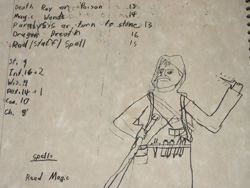 Death Ray or Poison 13
Magic Wands 14
Paralysis or turn to stone 13
Dragon Breath 16
Rod/Staff/Spell 15
St. 9
Int. 16+2
Wis. 9
Dex. 14+1
Con. 10
Ch. 8
spells
Read Magic